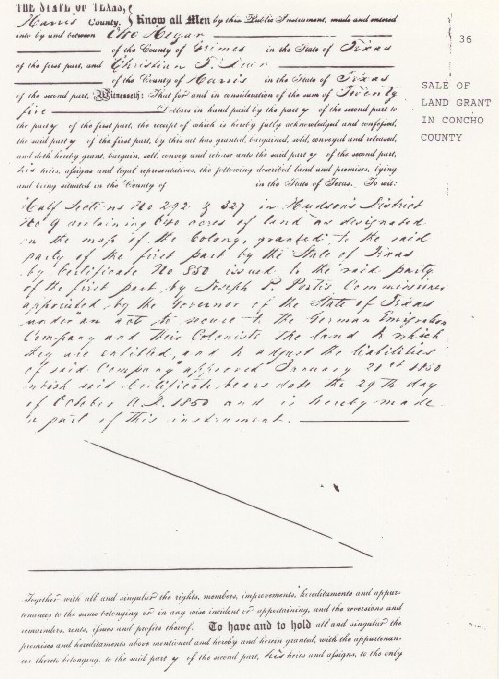 THE STATE OF TEXAS,
Harris County. Know all Men by this Public Instrument, made and entered
into by and between Otto
of the County of Grimes in the State of Texas
of the first part, and Christian F.
of the County of Harris in the State of Texas
of the second part, Witnesseth: That for and in consideration of the sum of Twenty
five Dollars in hand paid by the party of the second part to
the party of the first part, the receipt of which is hereby fully acknowledged and confessed,
the said party of the first part, by this act has granted, bargained, sold, conveyed and released,
and doth hereby grant, bargain, sell, convey and release unto the said party of the second part,
his heirs, assigns and legal representatives, the following described land and premises, lying
and being situated in the County of in the State of Texas. To wit:
Half Sections No 292 & 327 in Hudson's District
No 9 containing 640 acres of land as designated
on the map of the Colony, granted to the said
party of the first part by the State of Texas
by Certificate No 550 issued to the said party
of the first part by Joseph Commissioner
appointed by the Governor of the State of Texas
under an act to secure to the German Emigration
Company and their Colonists the land to which
they are entitled, and to adjust the liabilities
of said Company approved January 21st 1850
which said Certificate bears date the 29th day
of October A.D. 1850 and is hereby made
a part of this instrument.
Together with all and singular the rights, members, improvements, hereditaments and appur-
tenances to the same belonging or in any wise incident or appertaining, and the reversions and
remainders, rents, issues and profits thereof. To have and to hold all and singular the
premises and hereditaments above mentioned and hereby and herein granted, with the appurtenan-
ces thereto belonging, to the said party of the second part, his heirs and assigns, to the only
36
SALE OF
LAND GRANT
IN CONCHO
COUNTY